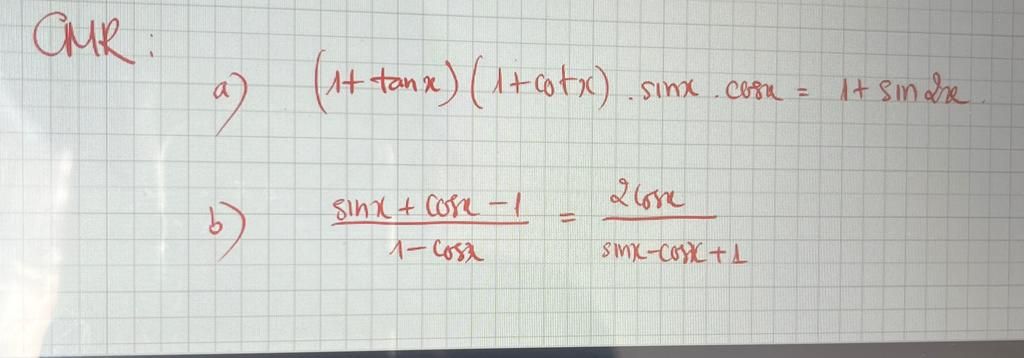 CMR :
a) (1 + tanx) (1 + cotx) . sinx . cosx = 1 + sin2x.
b) \frac{sinx + cosx - 1}{1 - cosx} = \frac{2cosx}{sinx - cosx + 1}